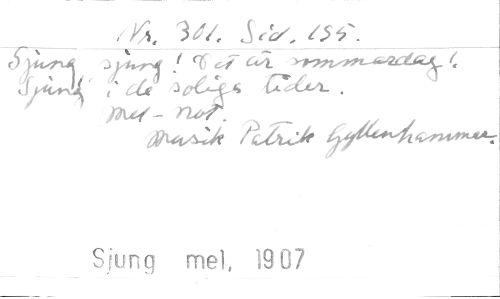 Nr. 301. Sid. 195.
Sjung sjung! Det är sommardag!
Sjung i de soliga tider.
mel-not.
Musik Patrik Gyllenhammar.
Sjung mel, 1907